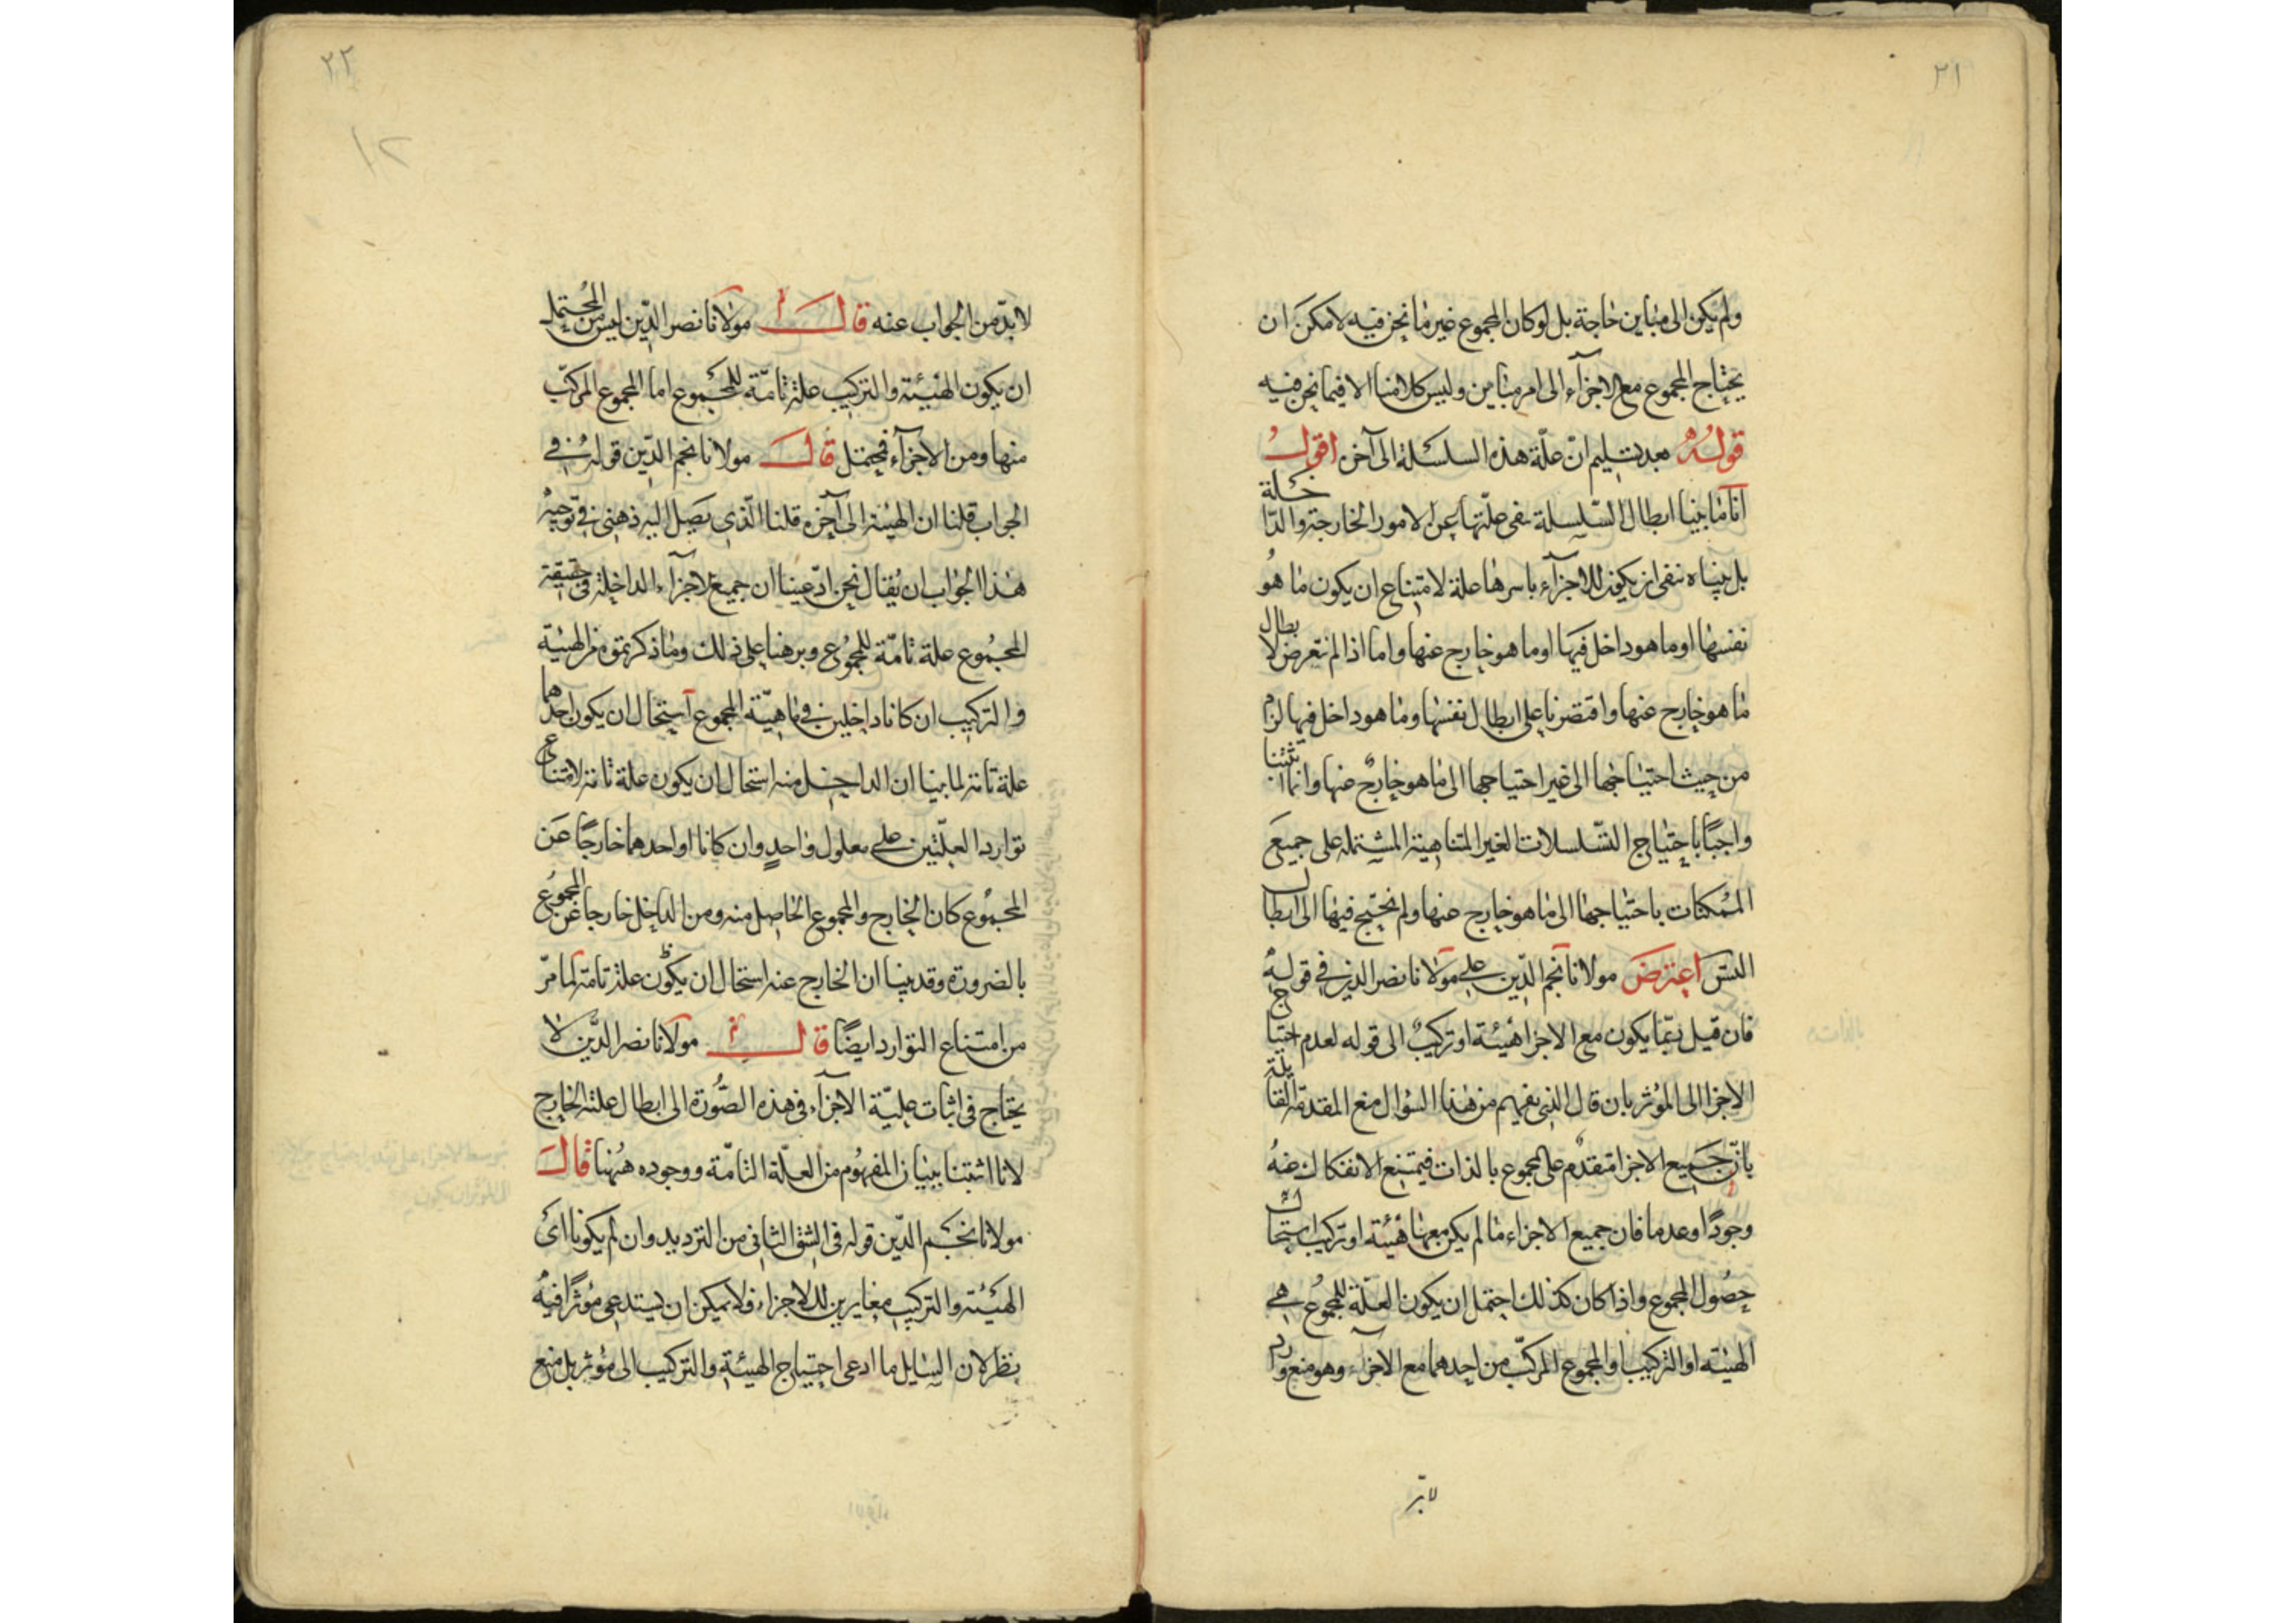 ٢١
ولم يكن الى مباين حاجة بل لو كان المجموع غير ما نحن فيه لامكن ان
يحتاج المجموع مع الاجزآء الى امر مباين وليس كلامنا الا فيما نحن فيه
قوله بعد تسليم ان علّة هذه السلسلة الى آخره اقول
انا ما بينا ابطال السّلسلة بنفى علّتها عن الامور الخارجة والداخلة
بل بيناه بنفى ان يكون للاجزآء باسرها علة لامتناع ان يكون ما هو
نفسها او ما هو داخل فيها او ما هو خارج عنها واما اذا لم نتعرض لابطال
ما هو خارج عنها واقتصرنا على ابطال نفسها وما هو داخل فيها لزم
من حيث احتياجها الى غير احتياجها الى ما هو خارج عنها وانما اثبتنا
واجبًا باحتياج التسلسلات الغير المتناهية المشتملة على جميع
الممكنات باحتياجها الى ما هو خارج عنها ولم نحتج فيها الى ابطال
التس اعترض مولانا نجم الدّين على مولانا نصر الدين في قوله
فان قيل ربّما يكون مع الاجزا هيئة او تركيب الى قوله لعدم احتياج
الاجزا الى المؤثر بان قال الذى يفهم من هذا السؤال منع المقدمة القايلة
بانّ جميع الاجزا متقدم على المجموع بالذات فيمتنع الانفكاك عنه
وجودًا وعدما فان جميع الاجزاء ما لم يكن معها هيئة او تركيب استحال
حصول المجموع واذا كان كذلك احتمل ان يكون العلّة للمجموع هى
الهيئة او التركيب او المجموع المركّب من احدهما مع الاجزاء وهو منع وارد
لابدّ
٢٢
١٢
لابدّ من الجواب عنه قال مولانا نصر الدّين ليس من المحتمل
ان يكون الهيئة والتركيب علة تامّة للمجموع اما المجموع المركّب
منها ومن الاجزآء فيحتمل قال مولانا نجم الدّين قوله فى
الجواب قلنا ان الهيئة الى آخره قلنا الّذى يصل اليه ذهنى فى توجيه
هذا الجواب ان يُقال نحن ادّعينا ان جميع الاجزآء الداخلة فى حقيقة
المجموع علة تامّة للمجموع وبرهنا على ذلك وما ذكرتموه من الهيئة
والتركيب ان كانا داخلين فى ماهيّة المجموع استحال ان يكون احدهما
علة تامة لما بينا ان الداخل منه استحال ان يكون علة تامة لامتناع
توارد العلّتين على معلول واحدٍ وان كانا او احدهما خارجًا عن
المجموع كان الخارج والمجموع الحاصل منه ومن الداخل خارجا عن المجموع
بالضرورة وقد بينا ان الخارج عنه استحال ان يكون علة تامة لما مرّ
من امتناع التوارد ايضًا قال مولانا نصر الدّين لا
يحتاج فى اثبات عليّة الاجزآء فى هذه الصّورة الى ابطال علته الخارج
لانا اثبتنا ببيان المفهوم من العلّة التامّة ووجوده ههُنا قال
مولانا نجم الدّين قوله فى الشق الثانى من الترديد وان لم يكونا اى
الهيئة والتركيب مغايرين للاجزاء فلا يمكن ان يستدعى مؤثرًا فيه
نظر لان السايل ما ادعى احتياج الهيئة والتركيب الى مؤثر بل منع